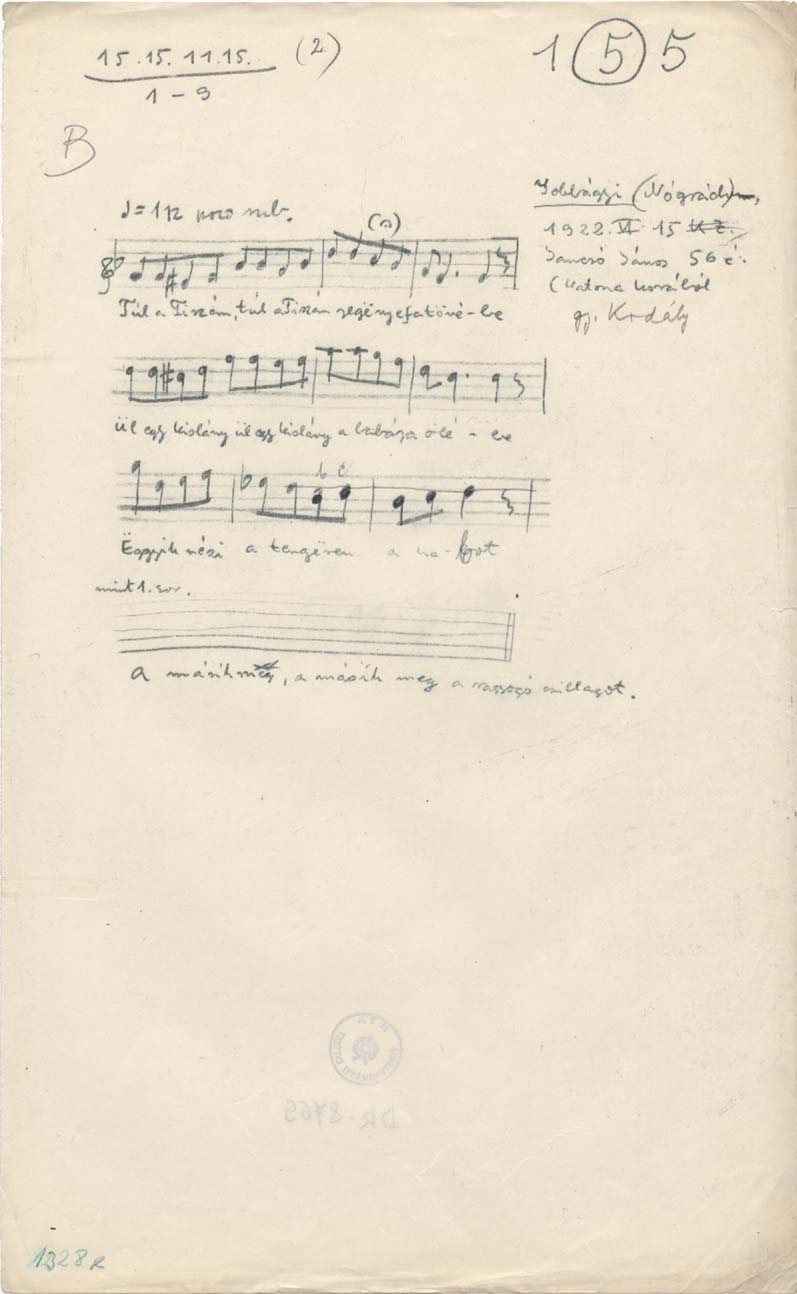 15. 15. 11. 15. (2)
1 – 9
1 5 5
B
♩=112 poco rub.
Jobbágyi (Nógrád),
1922. VI 15
Jancsó János 56 é.
(katona korából
gy. Kodály
Túl a Tiszám, túl a Tiszám szegényefatövé-be
Ül egy kislány ül egy kislány a babája ölé-be
b c
Ëggyik nézi a tengëren a ha-bot
mint 1. sor.
A másik meg, a másik meg a ragyogó csillagot.
DR-8769
1328